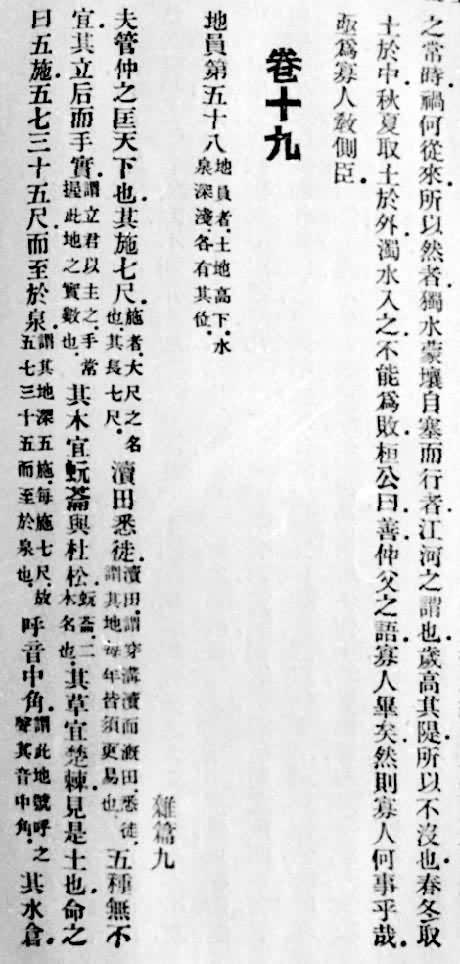 之常時．禍何從來．所以然者．獨水蒙壤自塞而行者．江河之謂也．歲高其隄．所以不沒也．春冬取
土於中．秋夏取土於外．濁水入之．不能爲敗．桓公曰．善．仲父之語寡人畢矣．然則寡人何事乎哉．
亟爲寡人敎側臣．
卷十九
地員第五十八地員者．土地高下．水泉深淺．各有其位．
雜篇九
夫管仲之匡天下也．其施七尺．施者．大尺之名也．其長七尺．瀆田悉徙．瀆田．謂穿溝瀆而溉田．悉徙．謂其地每年皆須更易也．五種無不
宜．其立后而手實．謂立君以主之．手常握此地之實數也．其木宜蚖菕與杜松．蚖菕．二木名也．其草宜楚棘．見是土也．命之
曰五施．五七三十五尺而至於泉．謂其地深五施．每施七尺．故五七三十五而至於泉也．呼音中角．謂此地號呼之聲．其音中角．其水倉．